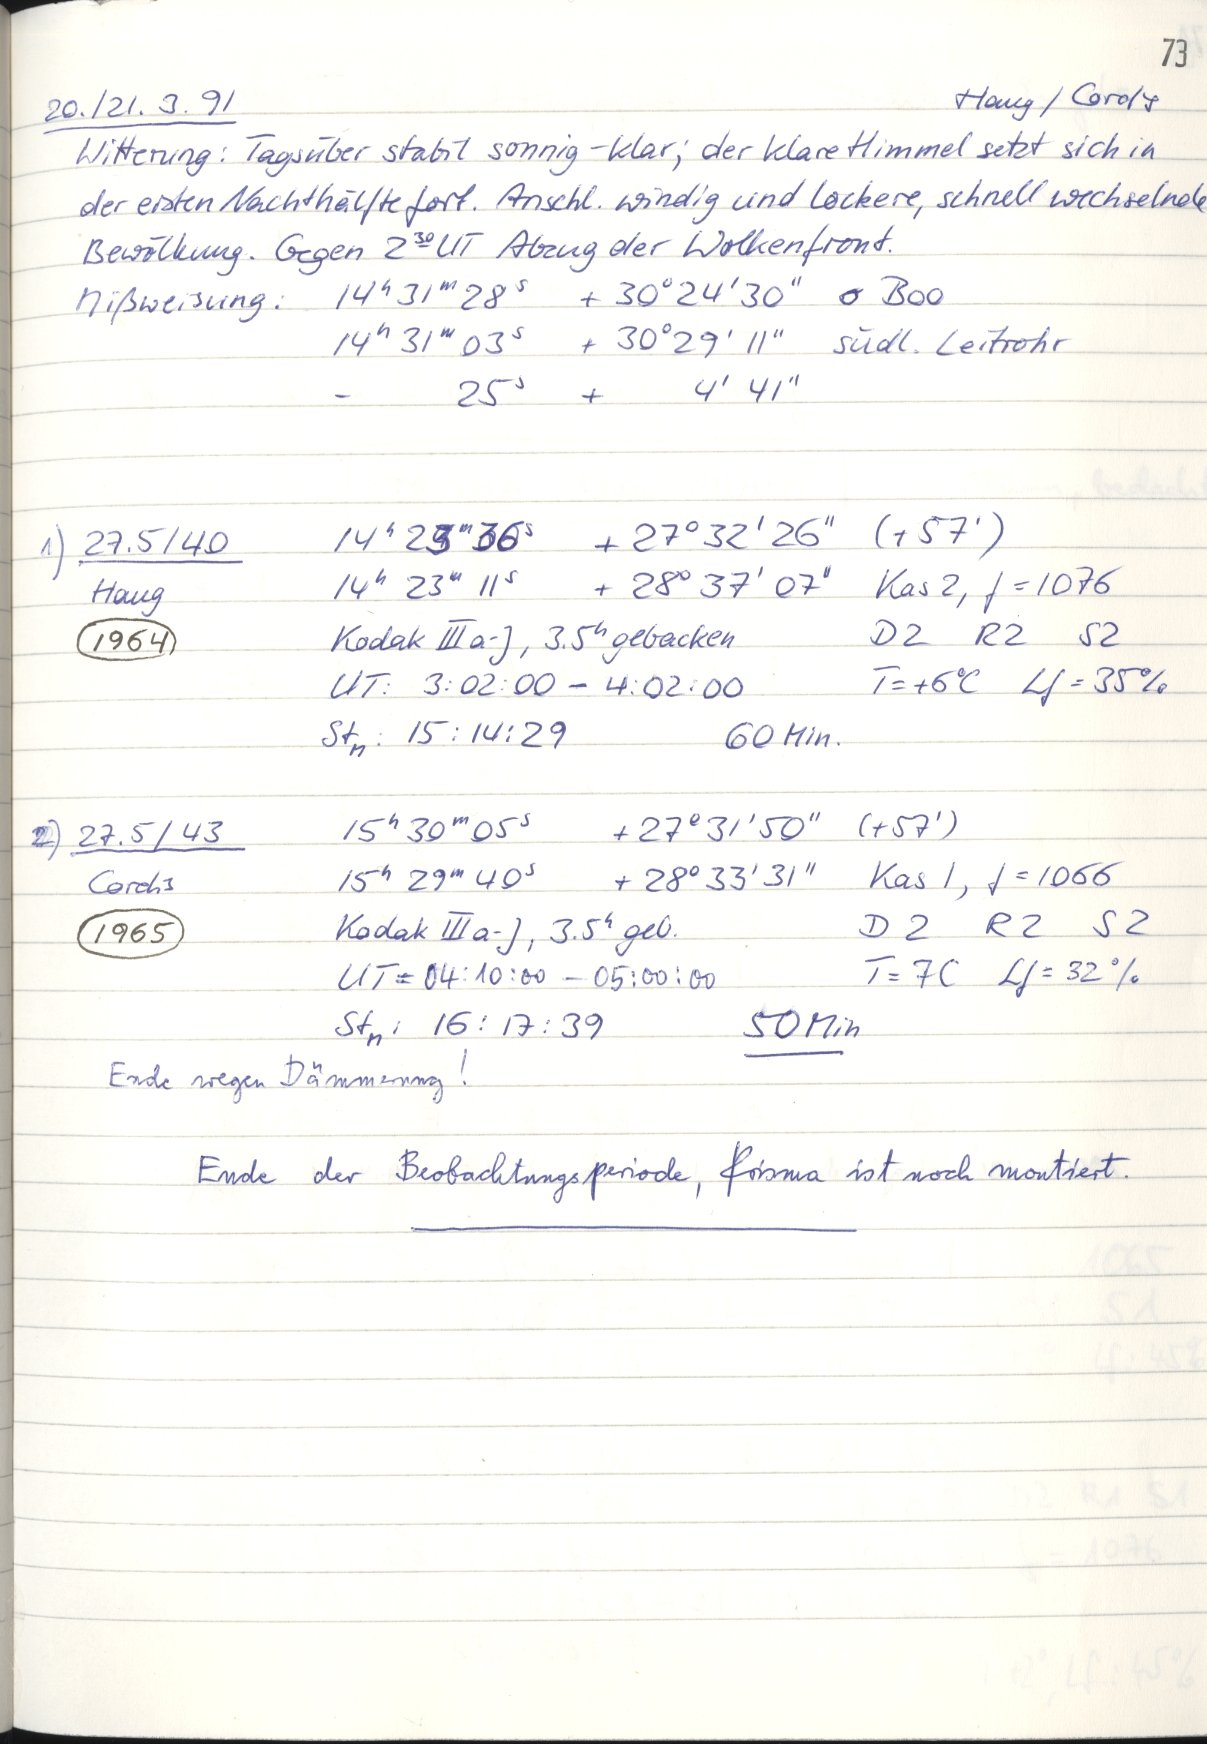 73
20./21. 3. 91 Haug / Cords
Witterung: Tagsüber stabil sonnig-klar; der klare Himmel setzt sich in
der ersten Nachthälfte fort. Anschl. windig und lockere, schnell wechselnde
Bewölkung. Gegen 2³⁰ UT Abzug der Wolkenfront.
Mißweisung: 14ʰ 31ᵐ 28ˢ + 30° 24' 30" σ Boo
14ʰ 31ᵐ 03ˢ + 30° 29' 11" südl. Leitrohr
- 25ˢ + 4' 41"
1) 27.5/40 14ʰ 23ᵐ 36ˢ + 27° 32' 26" (+57')
Haug 14ʰ 23ᵐ 11ˢ + 28° 37' 07" Kas 2, f = 1076
1964 Kodak IIIa-J, 3.5ʰ gebacken D2 R2 S2
UT: 3:02:00 - 4:02:00 T = +6°C Lf = 35%
Stₙ: 15:14:29 60 Min.
2) 27.5/43 15ʰ 30ᵐ 05ˢ + 27° 31' 50" (+57')
Cords 15ʰ 29ᵐ 40ˢ + 28° 33' 31" Kas 1, f = 1066
1965 Kodak IIIa-J, 3.5ʰ geb. D2 R2 S2
UT = 04:10:00 - 05:00:00 T = 7C Lf = 32%
Stₙ: 16:17:39 50 Min
Ende wegen Dämmerung!
Ende der Beobachtungsperiode, Prisma ist noch montiert.